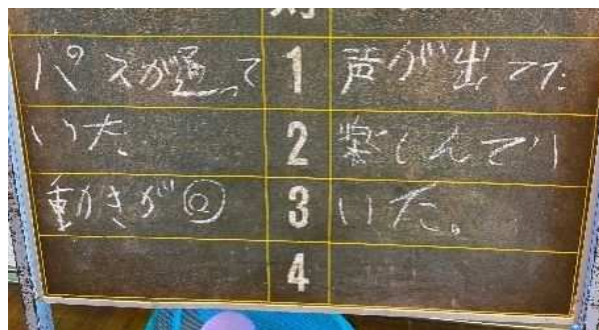 対
パスが通って 1 声が出てた
いた 2 楽しんでい
動きが◎ 3 いた。
4